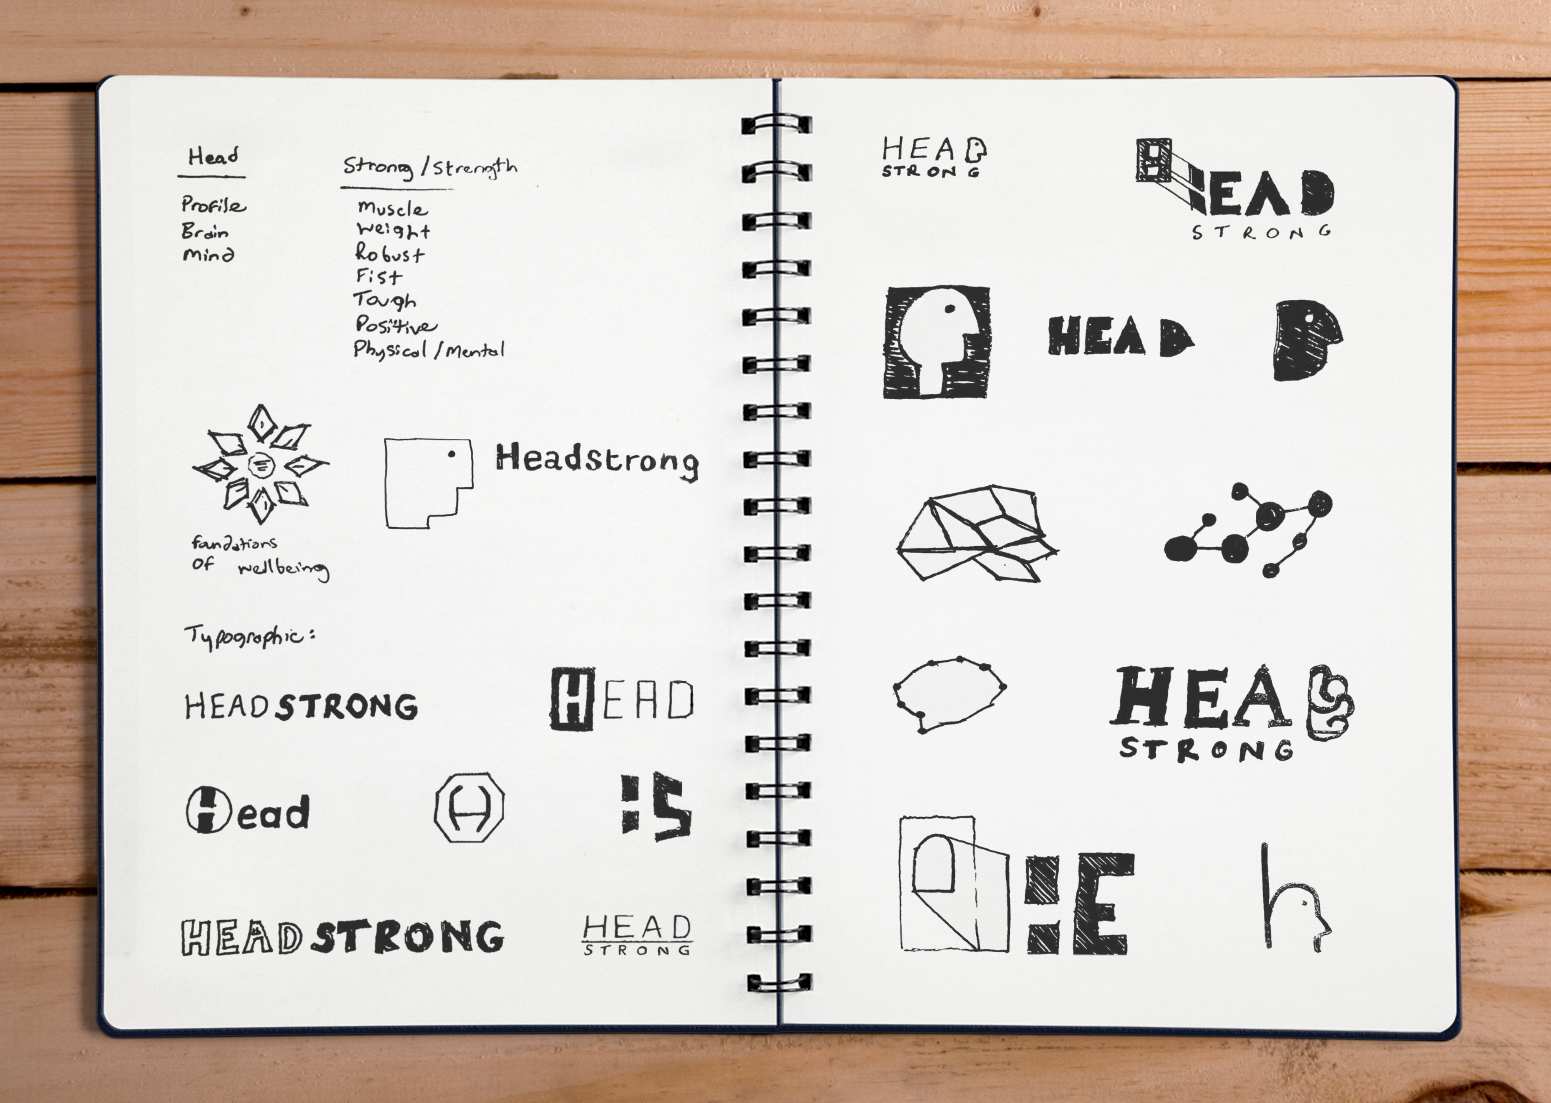 Head
Profile
Brain
Mind
Strong / Strength
Muscle
Weight
Robust
Fist
Tough
Positive
Physical / Mental
foundations
of wellbeing
Headstrong
Typographic:
HEADSTRONG
HEAD
Head
H
HS
HEADSTRONG
HEAD
STRONG
HEAD
STRONG
HEAD
STRONG
HEAD
HEAD
STRONG
HE
h